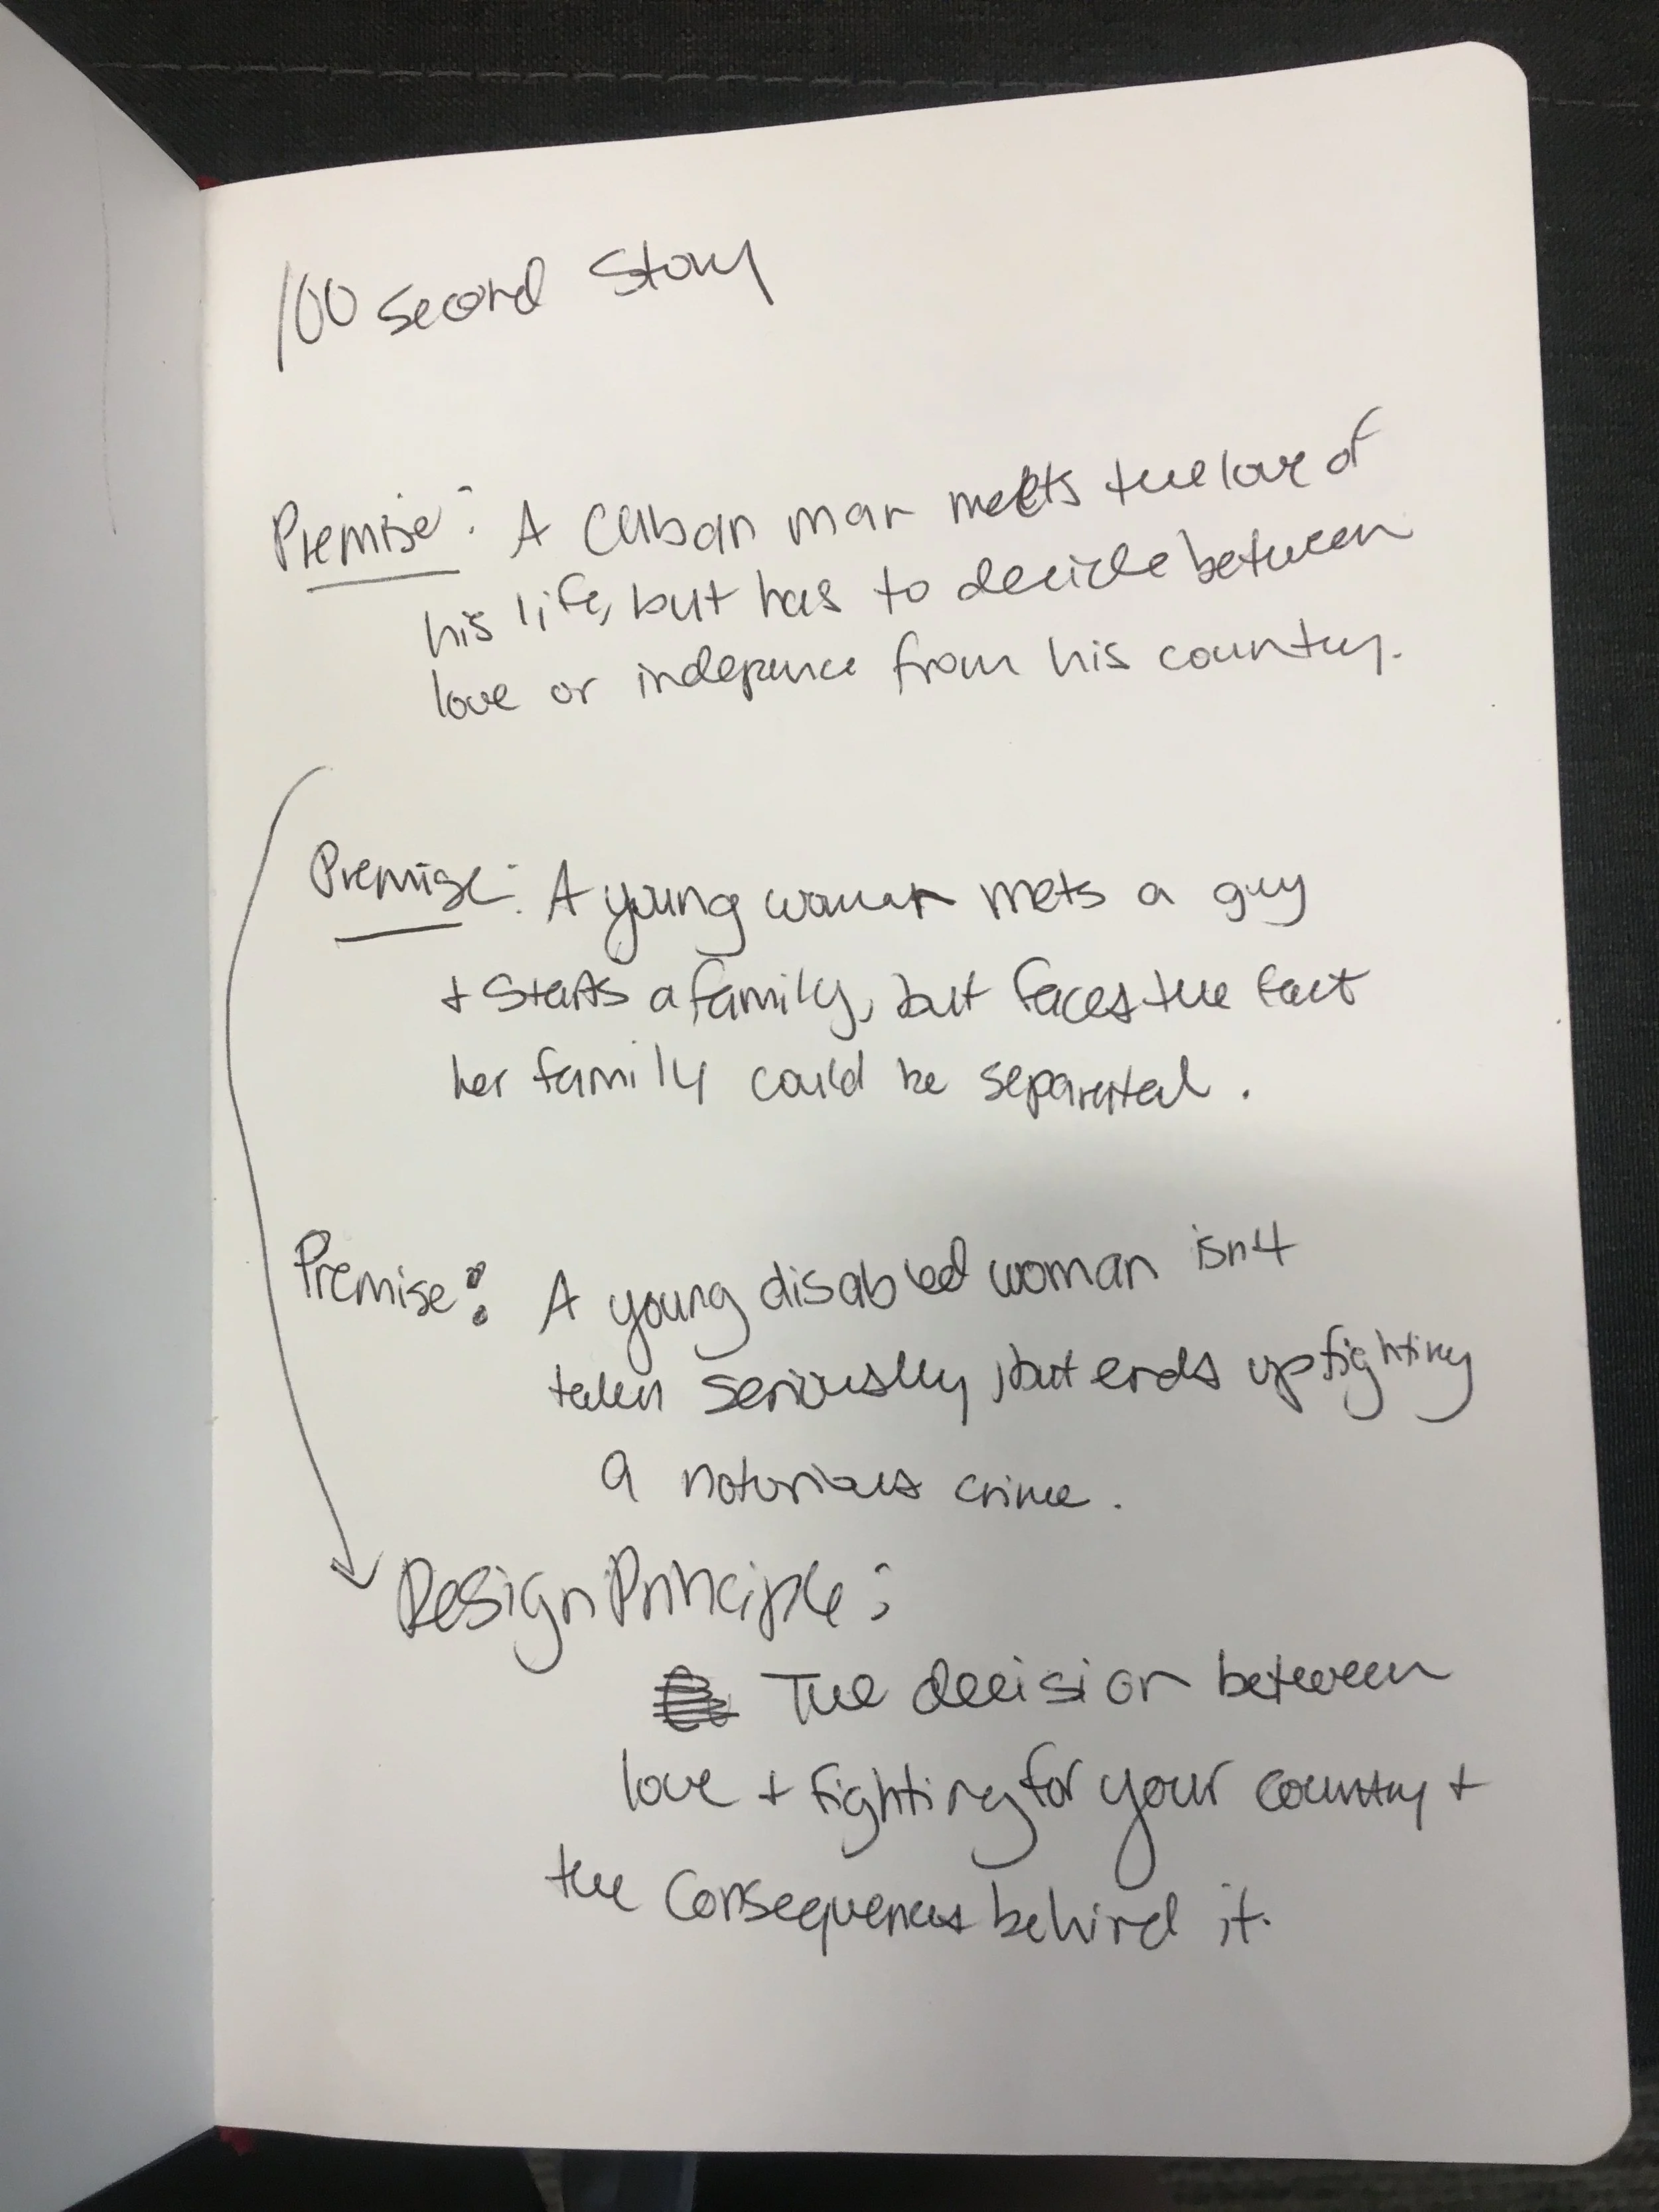 100 second Story
Premise: A Cuban man meets the love of
his life, but has to decide between
love or indepence from his country.
Premise: A young woman mets a guy
+ starts a family, but faces the fact
her family could be separated.
Premise: A young disabled woman isn't
taken seriously, but ends up fighting
a notorious crime.
Design Principle:
The decision between
love + fighting for your country +
the consequences behind it.